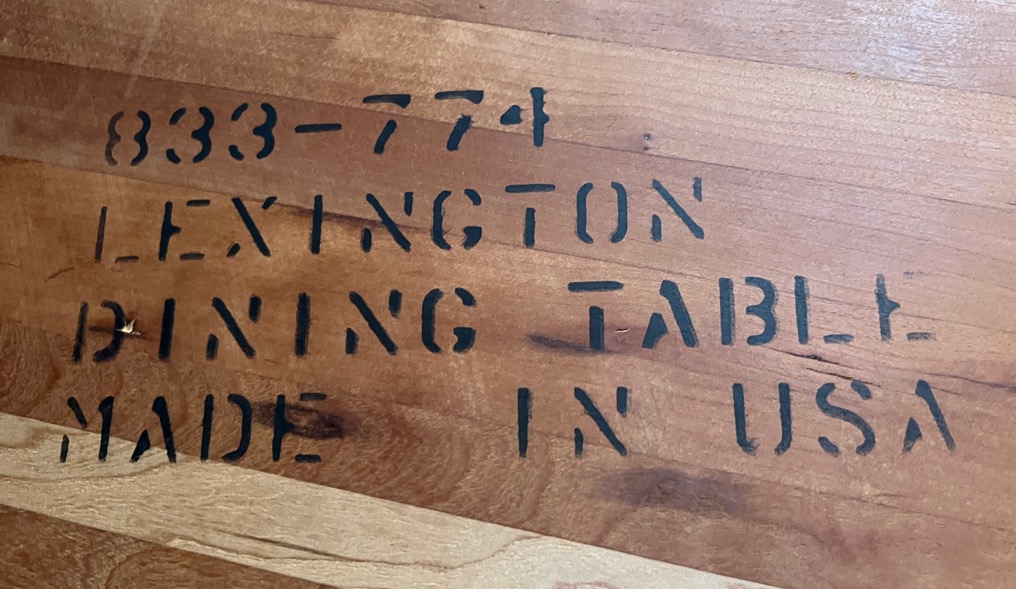 833-774
LEXINGTON
DINING TABLE
MADE IN USA